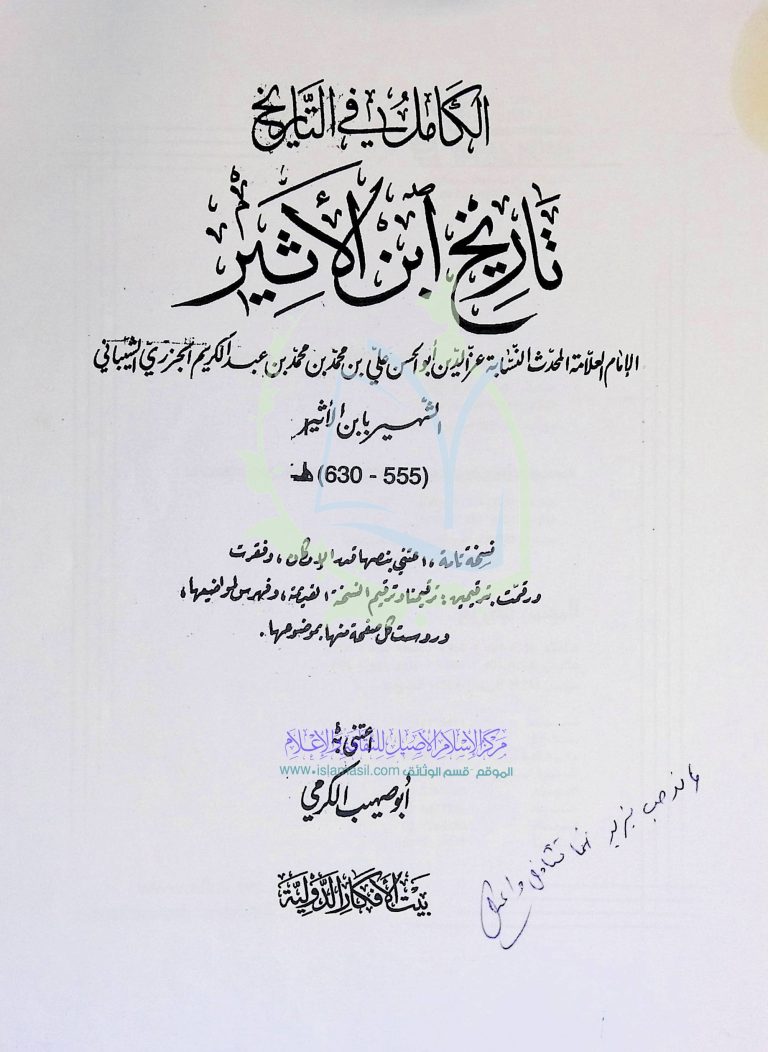 الكامل في التاريخ
تاريخ ابن الأثير
الإمام العلامة المحدث النسّابة عز الدين أبو الحسن علي بن محمد بن محمد بن عبد الكريم الجزري الشيباني
الشهير بابن الأثير
(555 - 630) هـ
نسخة تامة، اعتني بنصها قدر الإمكان، وفقرت
ورقمت بترقيمين: ترقيمنا وترقيم النسخة القديمة، وفهرس لمواضيعها،
وروست كل صفحة منها بموضوعها.
اعتنى به
مركز الإسلام الأصيل للثقافة والإعلام
الموقع - قسم الوثائق www.islamasil.com
أبو صهيب الكرمي
بيت الأفكار الدولية